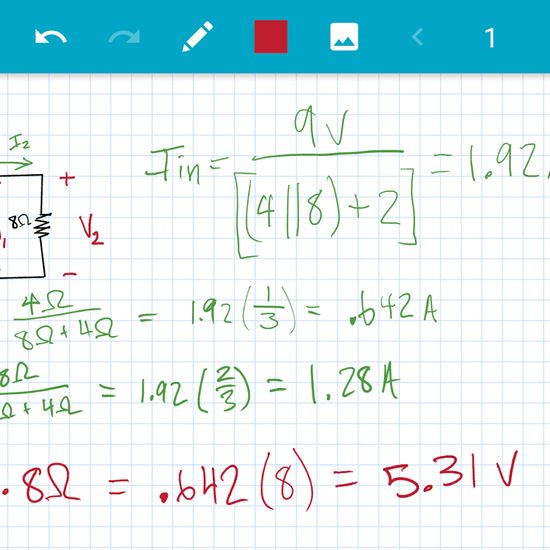 1
I2
Iin = 9V / [(4||8)+2] = 1.92
+
8Ω V2
-
4Ω / 8Ω+4Ω = 1.92 (1/3) = .642 A
8Ω / Ω+4Ω = 1.92 (2/3) = 1.28 A
.8Ω = .642 (8) = 5.31 V